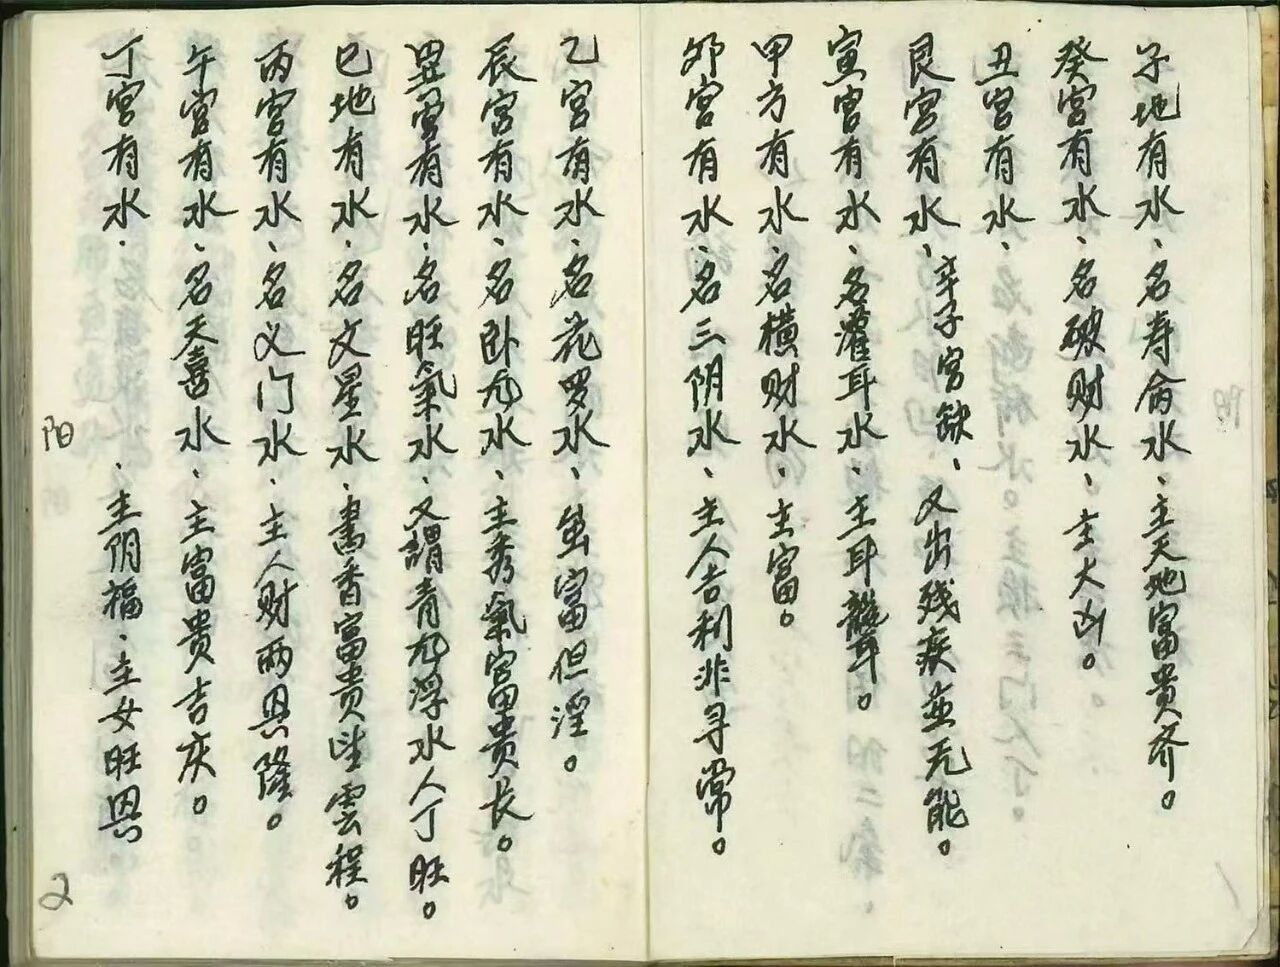 子地有水、名寿命水、主天地富贵齐。
癸宫有水、名破财水、主大凶。
丑宫有水、
艮宫有水、辛子宫缺、又出残疾並无能。
寅宫有水、名灌耳水、主耳聾。
甲方有水、名横财水、主富。
卯宫有水、名三阴水、主人吉利非寻常。
乙宫有水、名花罗水、虽富但淫。
辰宫有水、名卧龙水、主秀氣富贵长。
巽宫有水、名旺氣水、又謂青龙浮水人丁旺。
巳地有水、名文星水、書香富贵雲程。
丙宫有水、名义门水、主人财两恩隆。
午宫有水、名天喜水、主富贵吉庆。
丁宫有水、、主阴福、主女旺恩
阳
2